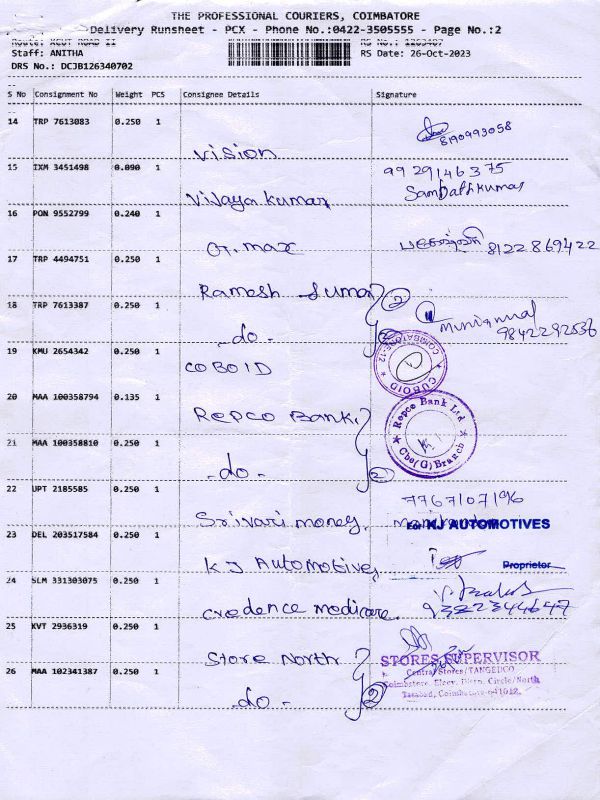 THE PROFESSIONAL COURIERS, COIMBATORE
Delivery Runsheet - PCX - Phone No.:0422-3505555 - Page No.:2
Route: XCUT ROAD II RS No.: 1263407
Staff: ANITHA RS Date: 26-Oct-2023
DRS No.: DCJB126340702
S No Consignment No Weight PCS Consignee Details Signature
14 TRP 7613083 0.250 1
vision 8190993058
15 IXM 3451498 0.090 1 9929146375
Vijaya kumar Sambathkumar
16 PON 9552799 0.240 1
G.max 8122869422
17 TRP 4494751 0.250 1
Ramesh Kumar 2
18 TRP 7613387 0.250 1 Muniammal
-do- 2 9842292536
19 KMU 2654342 0.250 1
COBOID CUBOID COIMBATORE-12
20 MAA 100358794 0.135 1
Repco Bank. Repco Bank Ltd Cbe(G) Branch
21 MAA 100358810 0.250 1
-do- 2
22 UPT 2185585 0.250 1 7767107196
Srivari money.
For KJ AUTOMOTIVES
23 DEL 203517584 0.250 1
KJ Automotive, Proprietor
24 SLM 331303075 0.250 1
credence medicare. 9382344647
25 KVT 2936319 0.250 1
Store North STORES SUPERVISOR
26 MAA 102341387 0.250 1 Central Stores/TANGEDCO
Coimbatore. Elecy. Distn. Circle/North
-do- 2 Tatabad, Coimbatore-641012.